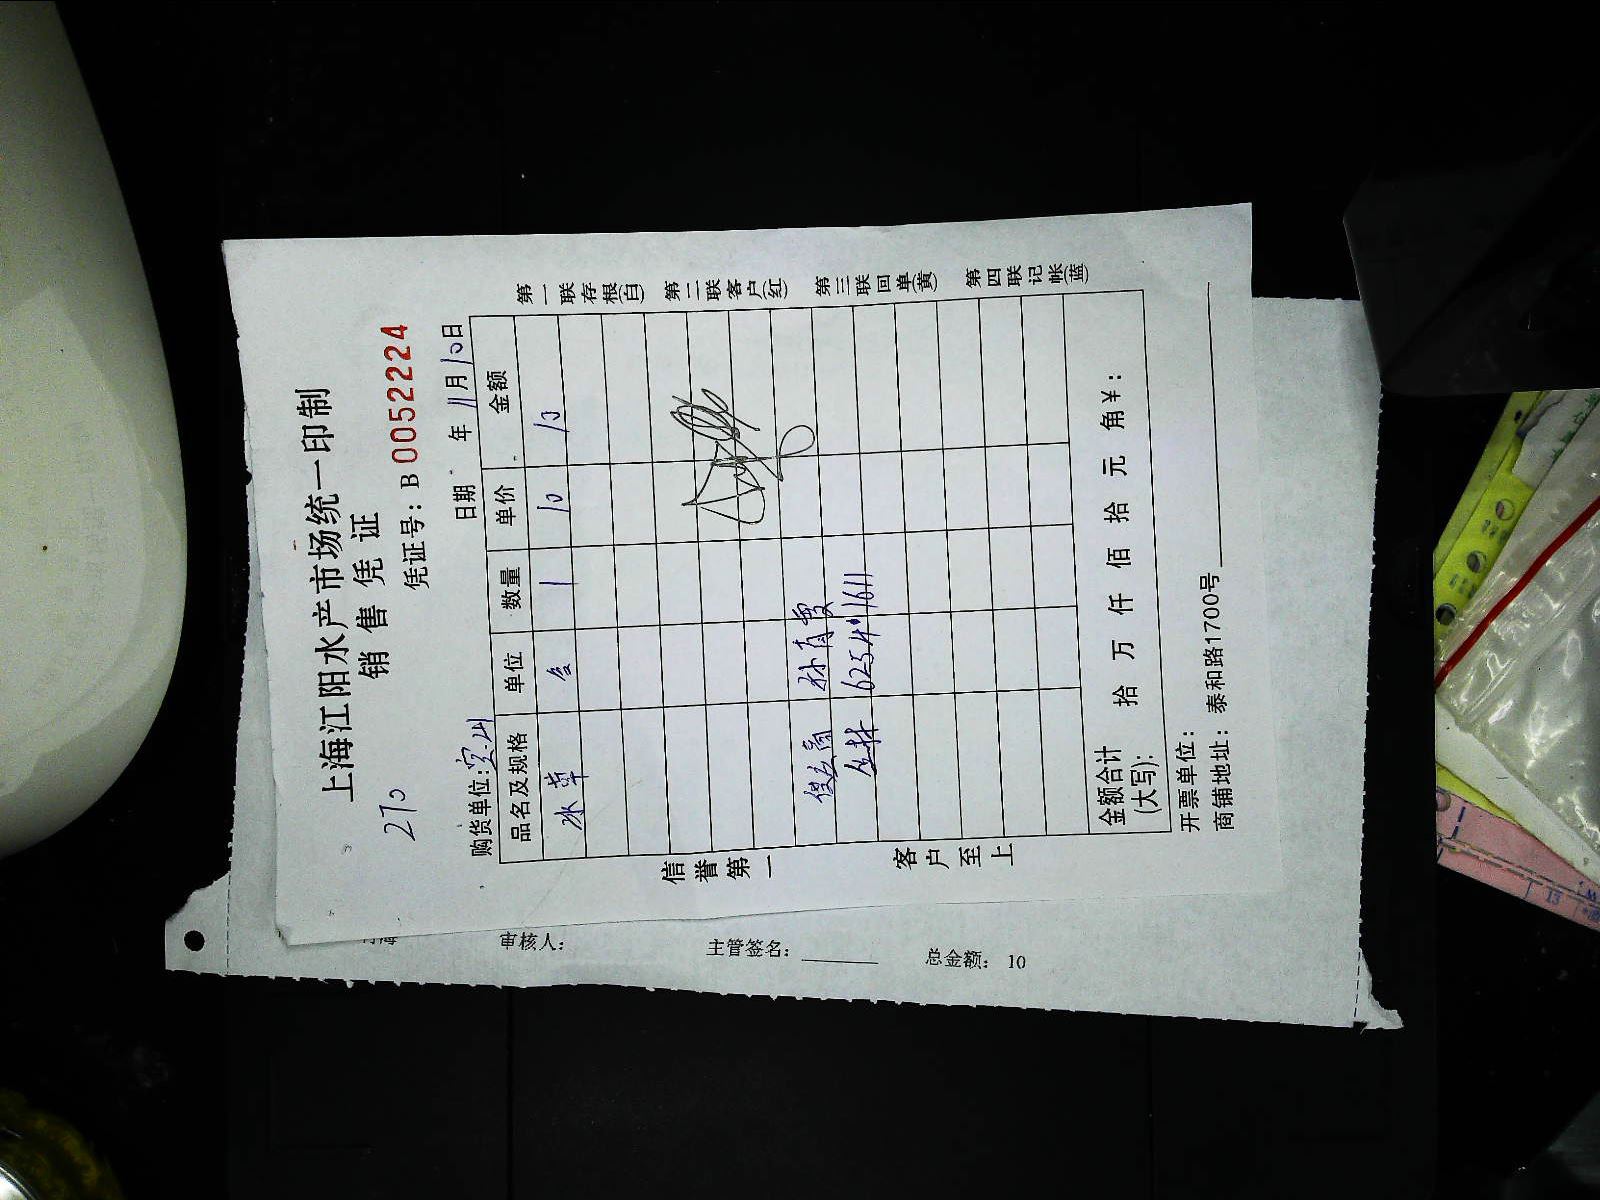 上海江阳水产市场统一印制
销售凭证
270
凭证号：B 0052224
购货单位：宝山
日期 年 11月10日
品名及规格 单位 数量 单价 金额
冰草 1 10 10
62541611
金额合计（大写）： 拾 万 仟 佰 拾 元 角￥：
开票单位：
商铺地址：泰和路1700号
信誉第一
客户至上
第一联存根（白）
第二联客户（红）
第三联回单（黄）
第四联记帐（蓝）
审核人：
主管签名：
总金额： 10